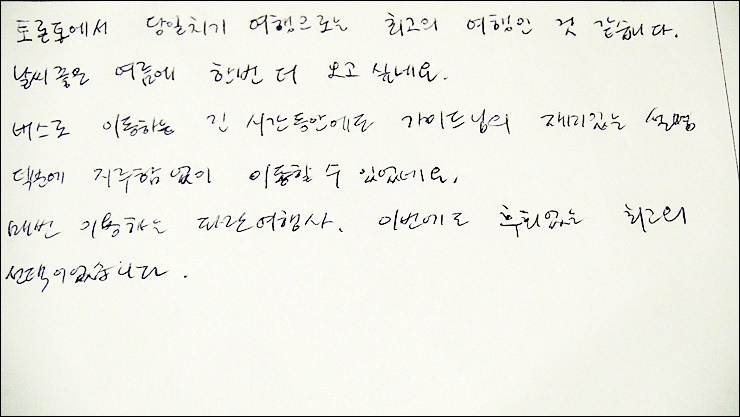 토론토에서 당일치기 여행으로는 최고의 여행인 것 같습니다.
날씨 좋은 여름에 한번 더 오고 싶네요.
버스로 이동하는 긴 시간동안에도 가이드님의 재미있는 설명
덕분에 지루함 없이 이동할 수 있었네요.
매번 이용하는 파란여행사. 이번에도 후회없는 최고의
선택이었습니다.